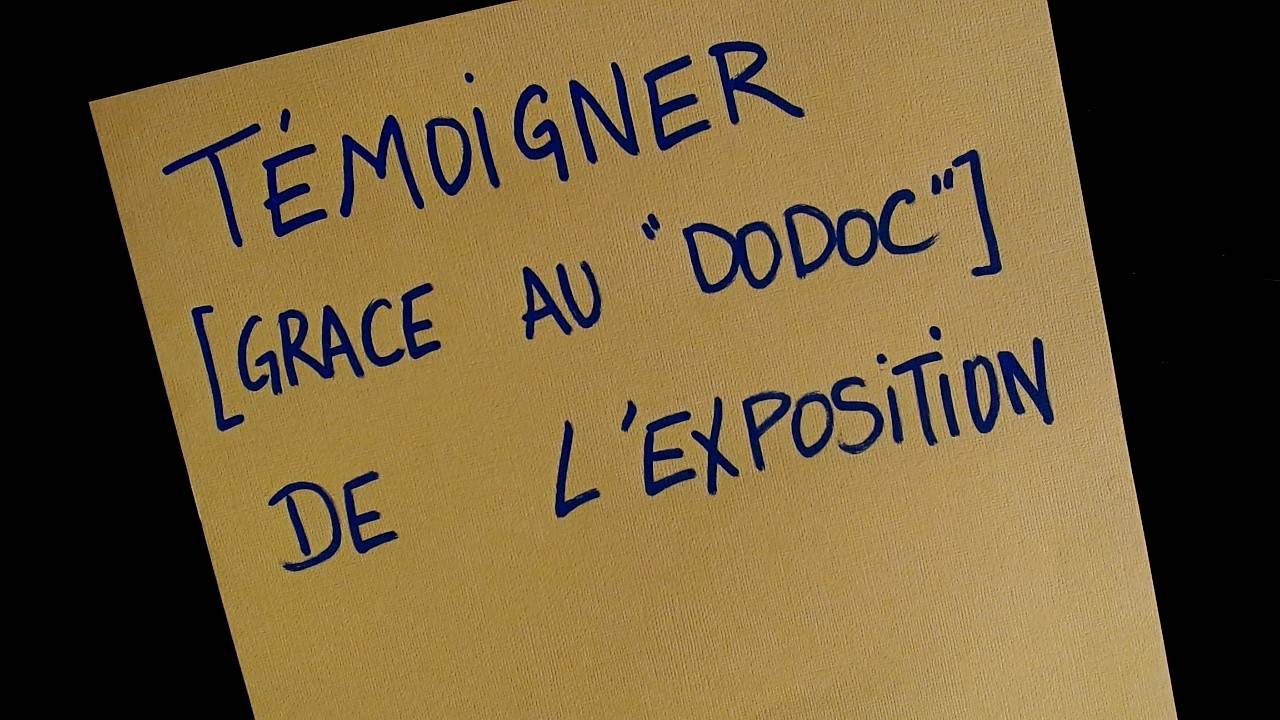 TÉMOIGNER
[GRACE AU "DODOC"]
DE L'EXPOSITION